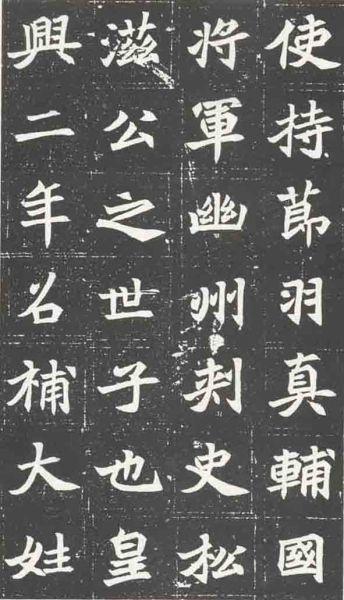 使持莭羽真輔國
将軍幽州刾史松
滋公之世子也皇
興二年召補大姓